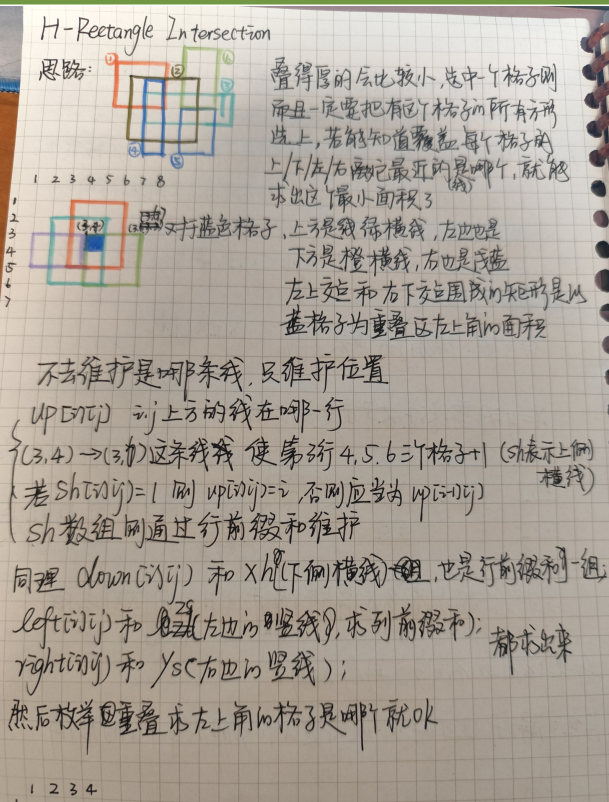 H-Rectangle Intersection
思路:
① ② ③ ④ ⑤ ⑥
叠得厚的会比较小,选中一个格子则
而且一定要把有这个格子的所有方形
选上,若能知道覆盖每个格子的
上/下/左/右离它最近的是哪个,就能
(线)
求出这个最小面积了
1 2 3 4 5 6 7 8
1
2
3
4
5
6
7
(3,4)
对于蓝色格子,上方是绿横线,左边也是
下方是橙横线,右也是浅蓝
左上交点和右下交点围成的矩形是以
蓝格子为重叠区左上角的面积
不去维护是哪条线,只维护位置
up[i][j] i,j上方的线在哪一行
(3,4)→(3,7)这条线 使第3行4,5,6三个格子+1 (sh表示上侧
横线)
若sh[i][j]=1 则 up[i][j]=i,否则应当为up[i-1][j]
sh数组则通过行前缀和维护
同理 down[i][j] 和 xh(下侧横线)一组,也是行前缀和;
left[i][j]和zs(左边的竖线),求列前缀和);
right[i][j]和ys(右边的竖线);
都求出来
然后枚举重叠求左上角的格子是哪个就OK
1 2 3 4